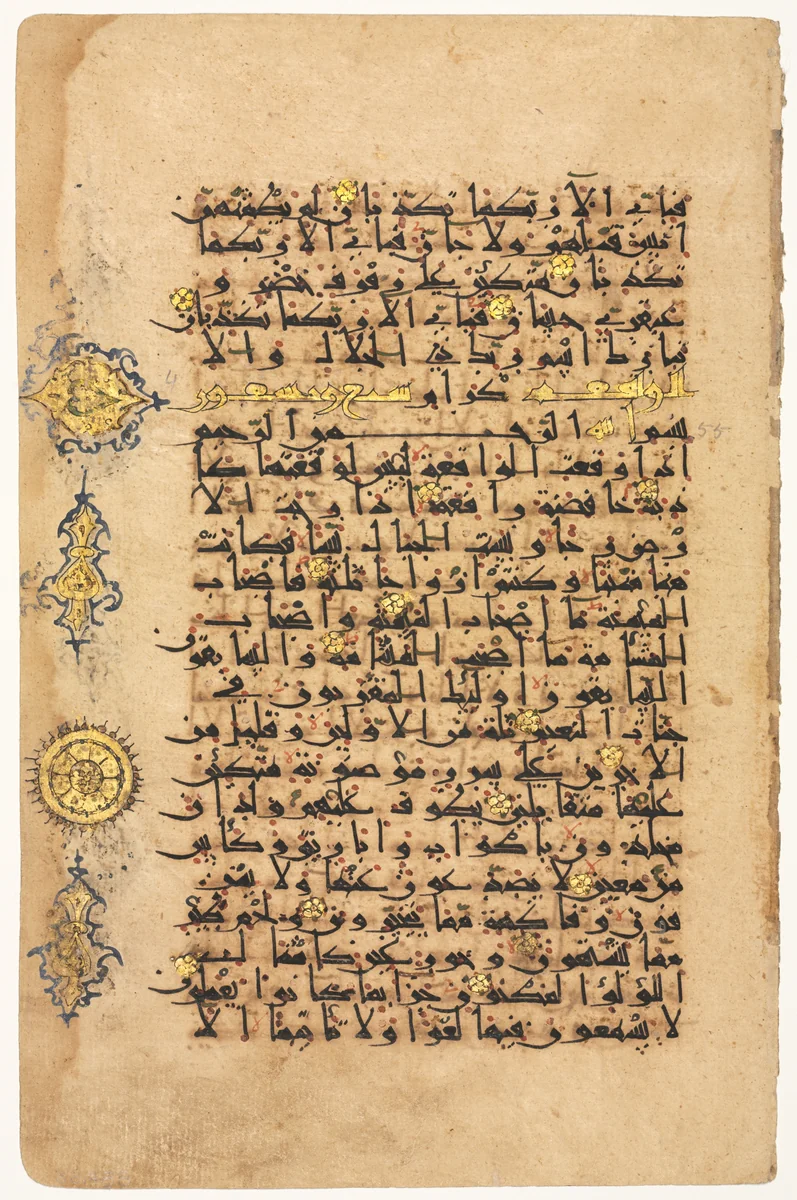 فباي الا ربكما تكذبان لم يطمثهن
انس قبلهم ولا جان فباي الا ربكما
تكذبان متكئين على رفرف خضر و
عبقري حسان فباي الا ربكما تكذبان
تبارك اسم ربك ذي الجلال والا
الواقعة كرام سبع وتسعون
بسم الله الرحمن الرحيم
اذا وقعت الواقعة ليس لوقعتها كا
ذبة خافضة رافعة اذا رجت الا
رض رجا وبست الجبال بسا فكانت
هباء منبثا وكنتم ازواجا ثلثة فاصحاب
الميمنة ما اصحاب الميمنة واصحاب
المشأمة ما اصحب المشأمة والسابقون
السابقون اولئك المقربون في
جنات النعيم ثلة من الاولين وقليل من
الاخرين على سرر موضونة متكئين
عليها متقابلين يطوف عليهم ولدان
مخلدون باكواب واباريق وكأس
من معين لا يصدعون عنها ولا ينز
فون وفاكهة مما يتخيرون ولحم طير
مما يشتهون وحور عين كامثال
اللؤلؤا المكنون جزاء بما كانوا يعملون
لا يسمعون فيها لغوا ولا تأثيما الا
4
55